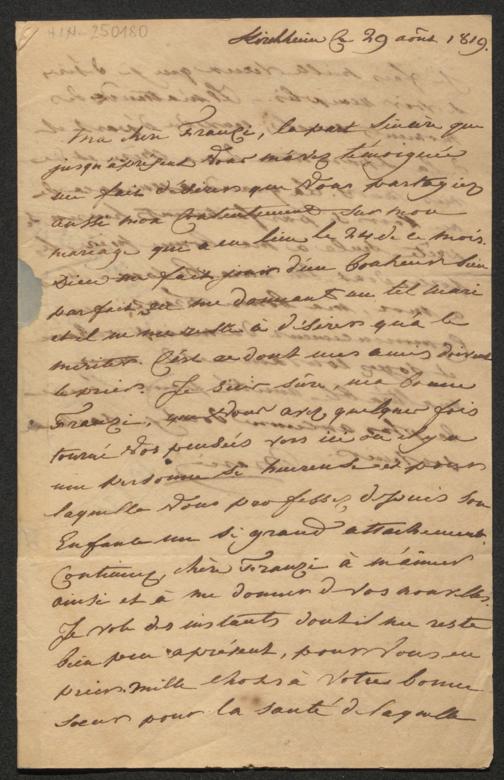 H.I.N.-250180
Kirchheim Ce 29 août 1819.
Ma chère Franzi, la part sincère que
jusqu'à présent Vous m'avez témoignée
me fait désirer que Vous partagiez
aussi mon Contentement sur mon
mariage qui a eu lieu le 24 de ce mois.
Dieu me fait jouir d'un bonheur bien
parfait, en me donnant un tel mari
et il ne me reste à désirer qu'à le
mériter. C'est ce dont mes amis doivent
le prier. Je suis sûre, ma bonne
Franzi, que Vous avez quelques fois
tourné Vos pensées vers ici où il y a
une personne si heureuse et pour
laquelle Vous professez depuis son
Enfance un si grand attachement.
Continuez, chère Franzi à m'aimer
ainsi et à me donner de Vos nouvelles.
Je vole des instants dont il me reste
bien peu à présent, pour Vous en
prier. mille choses à Votre bonne
soeur pour la santé de laquelle